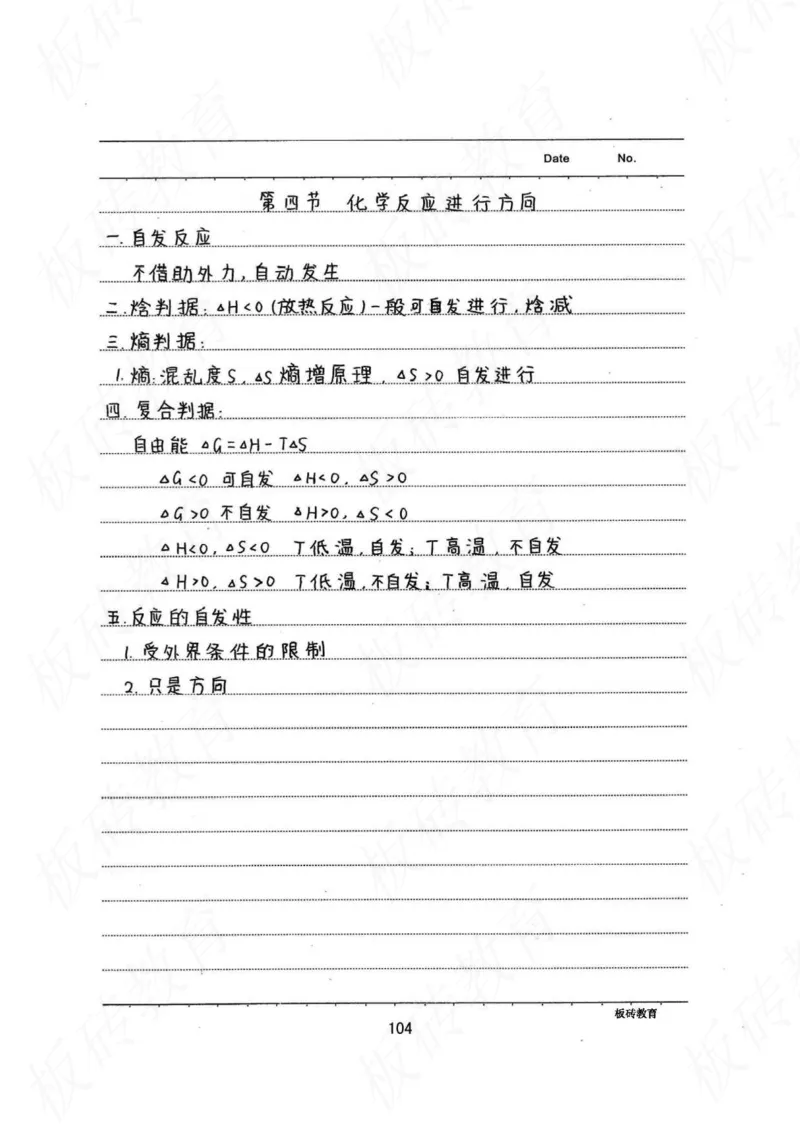 Date No.
第四节 化学反应进行方向
一.自发反应
不借助外力,自动发生
二.焓判据:△H<0(放热反应)一般可自发进行,焓减
三.熵判据:
1.熵:混乱度S,△S熵增原理,△S>0 自发进行
四.复合判据:
自由能 △G=△H-T△S
△G<0 可自发 △H<0,△S>0
△G>0 不自发 △H>0,△S<0
△H<0,△S<0 T低温,自发;T高温,不自发
△H>0,△S>0 T低温,不自发;T高温,自发
五.反应的自发性
1.受外界条件的限制
2.只是方向
板砖教育
104